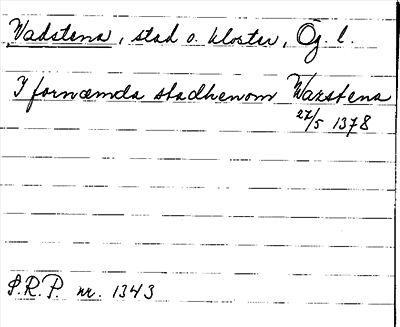 Vadstena, stad o. kloster, Ög. l.
I fornæmda stadhenom Wazstena
27/5 1378
S.R.P. nr. 1343